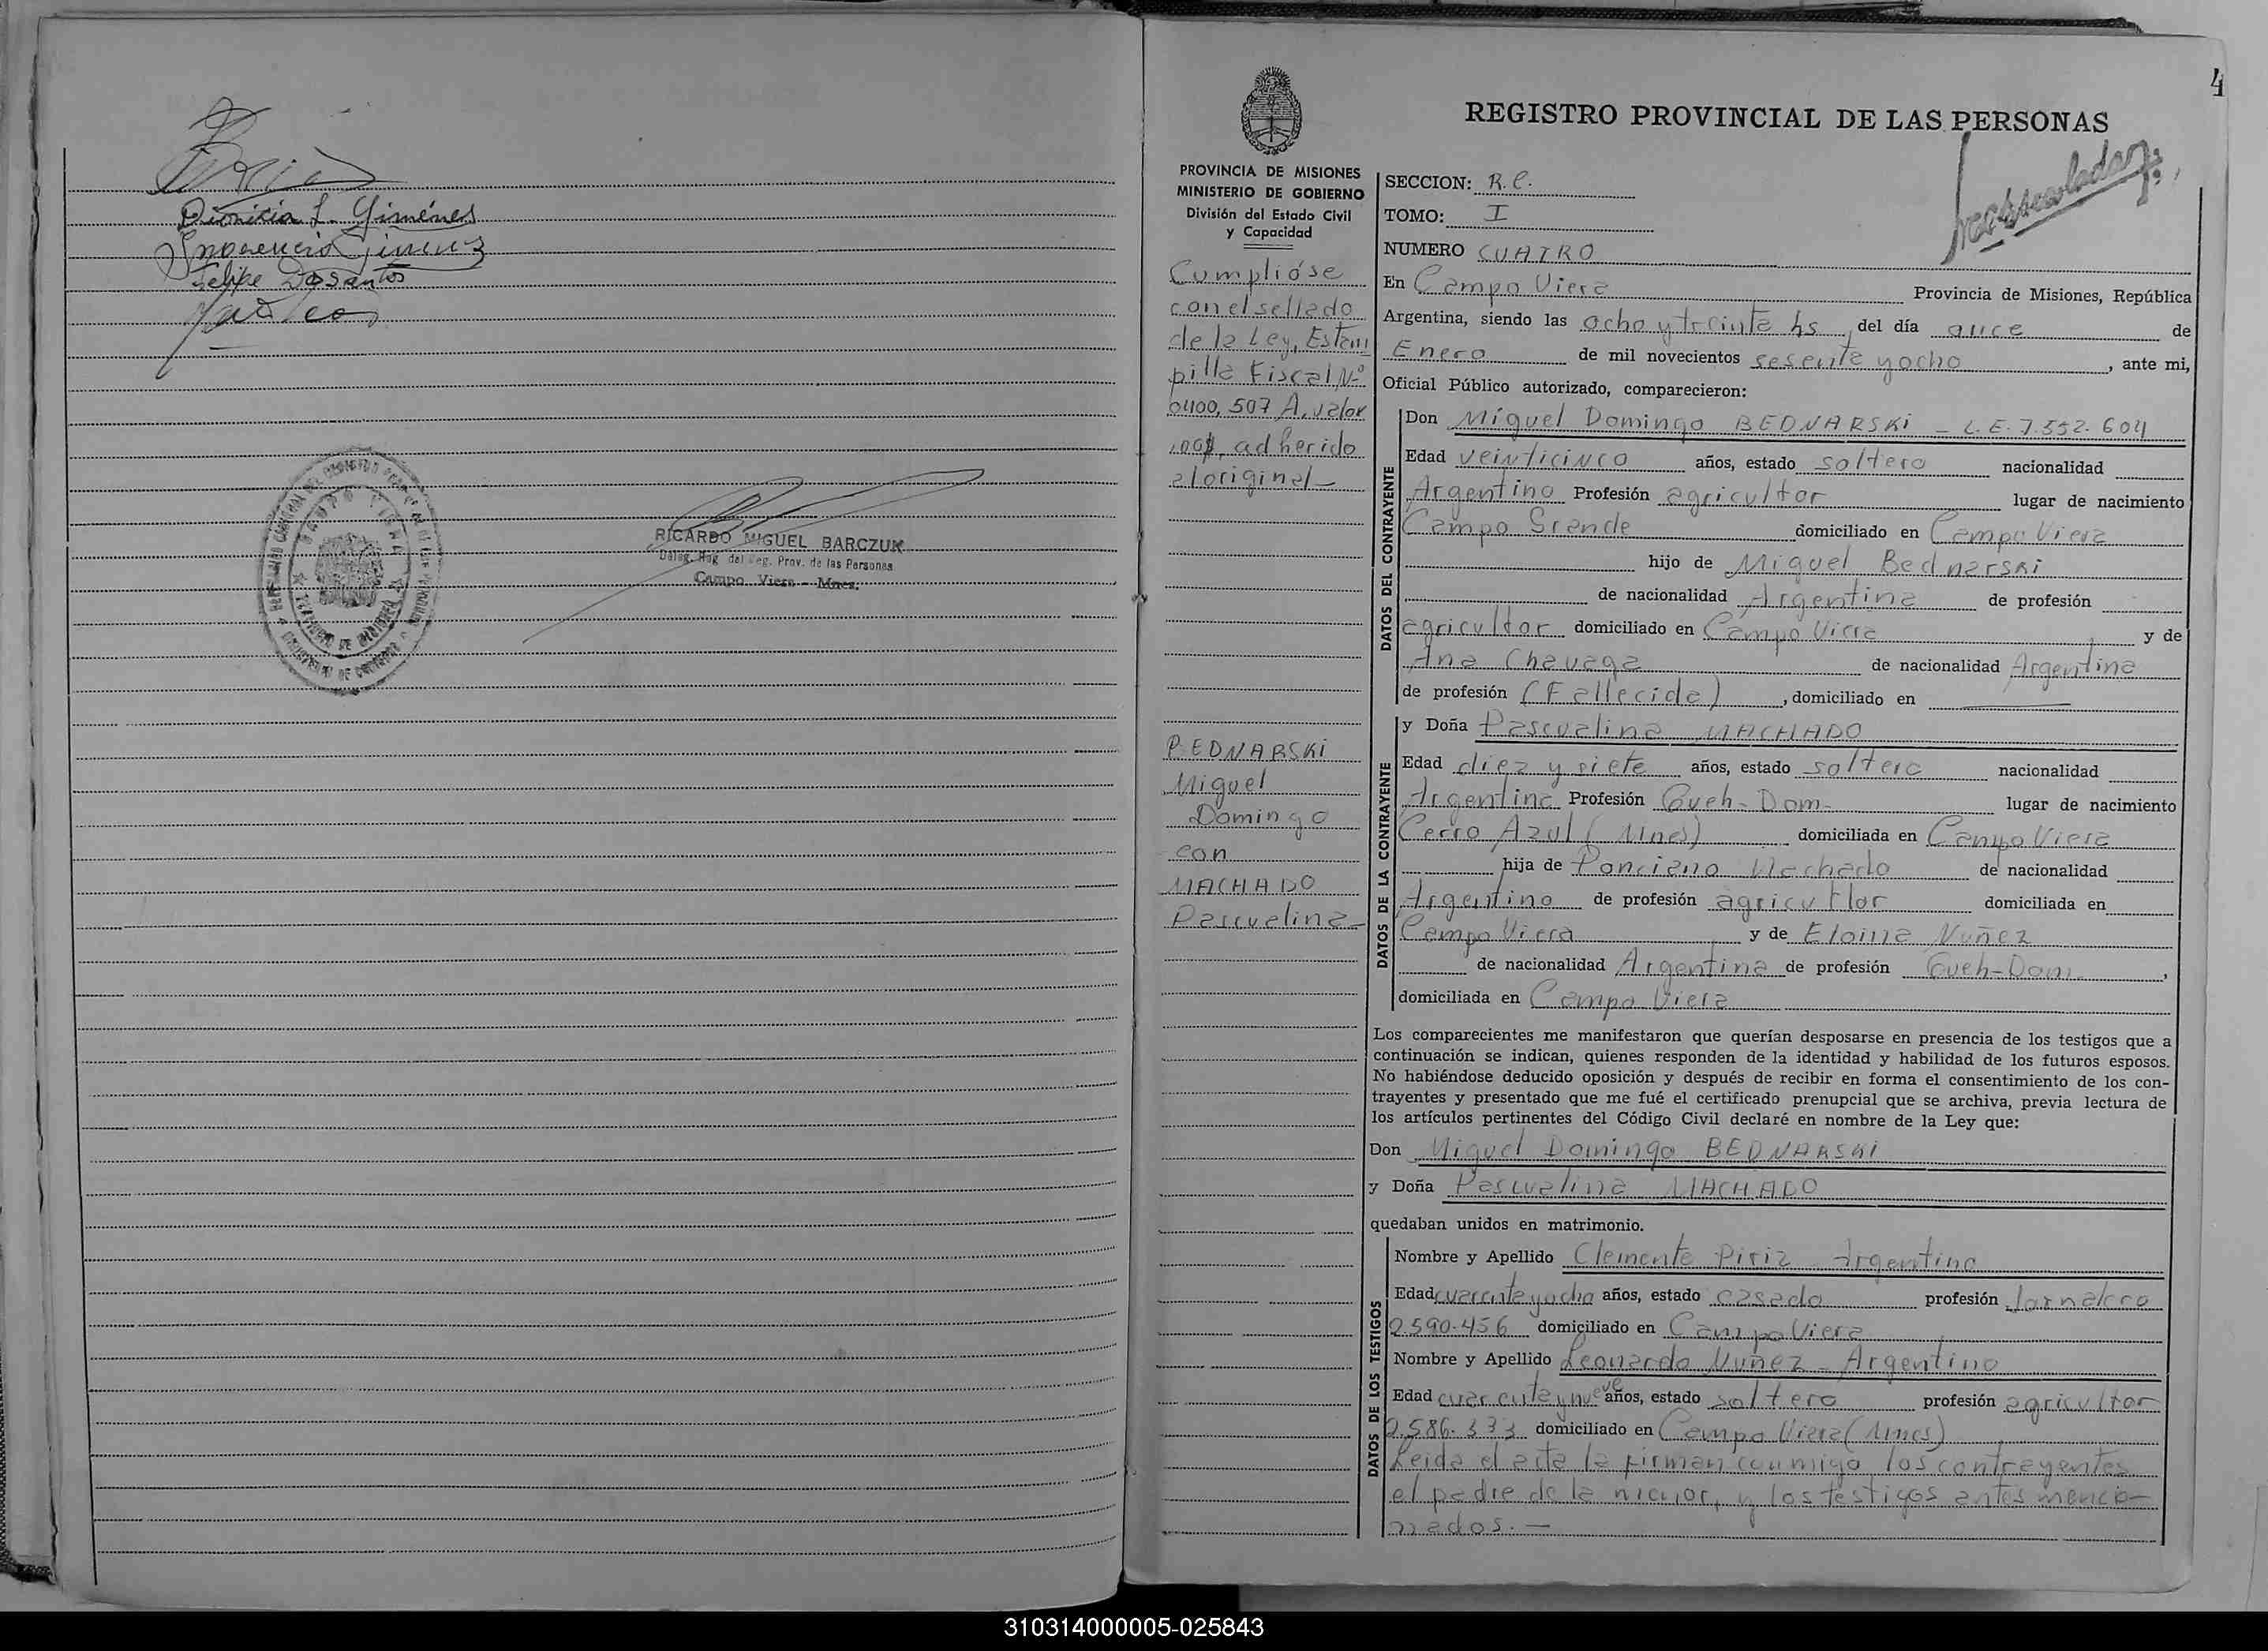 Dionicia L. Giménes
Inocencia Gimenez
Felipe Dosantos
RICARDO MIGUEL BARCZUK
Deleg. Reg. del Reg. Prov. de las Personas
Campo Viera - Mnes.
4
REGISTRO PROVINCIAL DE LAS PERSONAS
PROVINCIA DE MISIONES
MINISTERIO DE GOBIERNO
División del Estado Civil
y Capacidad
Cumplióse
con el sellado
de la Ley, Estam
pilla Fiscal Nº
0400,507 A, valor
100$, adherido
al original
BEDNARSKI
Miguel
Domingo
con
MACHADO
Pascualina
SECCION: R.C.
TOMO: I
NUMERO CUATRO
En Campo Viera Provincia de Misiones, República
Argentina, siendo las ocho y treinta hs del día once de
Enero de mil novecientos sesenta y ocho, ante mi,
Oficial Público autorizado, comparecieron:
DATOS DEL CONTRAYENTE
Don Miguel Domingo BEDNARSKI - L.E. 7.552.604
Edad veinticinco años, estado soltero nacionalidad
Argentino Profesión agricultor lugar de nacimiento
Campo Grande domiciliado en Campo Viera
hijo de Miguel Bednarski
de nacionalidad Argentina de profesión
agricultor domiciliado en Campo Viera y de
Ana Chavaga de nacionalidad Argentina
de profesión (Fallecida), domiciliado en
DATOS DE LA CONTRAYENTE
y Doña Pascualina MACHADO
Edad diez y siete años, estado soltera nacionalidad
Argentina Profesión Queh-Dom- lugar de nacimiento
Cerro Azul (Mnes) domiciliada en Campo Viera
hija de Ponciano Machado de nacionalidad
Argentino de profesión agricultor domiciliada en
Campo Viera y de Eloina Nuñez
de nacionalidad Argentina de profesión Queh-Dom.,
domiciliada en Campo Viera
Los comparecientes me manifestaron que querían desposarse en presencia de los testigos que a
continuación se indican, quienes responden de la identidad y habilidad de los futuros esposos.
No habiéndose deducido oposición y después de recibir en forma el consentimiento de los con-
trayentes y presentado que me fué el certificado prenupcial que se archiva, previa lectura de
los artículos pertinentes del Código Civil declaré en nombre de la Ley que:
Don Miguel Domingo BEDNARSKI
y Doña Pascualina MACHADO
quedaban unidos en matrimonio.
DATOS DE LOS TESTIGOS
Nombre y Apellido Clemente Piriz Argentino
Edad cuarenta y ocho años, estado casado profesión Jornalero
2.590.456 domiciliado en Campo Viera
Nombre y Apellido Leonardo Nuñez - Argentino
Edad cuarenta y nueve años, estado soltero profesión agricultor
2.586.333 domiciliado en Campo Viera (Mnes)
Leida el acta la firman conmigo los contrayentes
el padre de la menor, y los testigos antes mencio-
nados. —
310314000005-025843